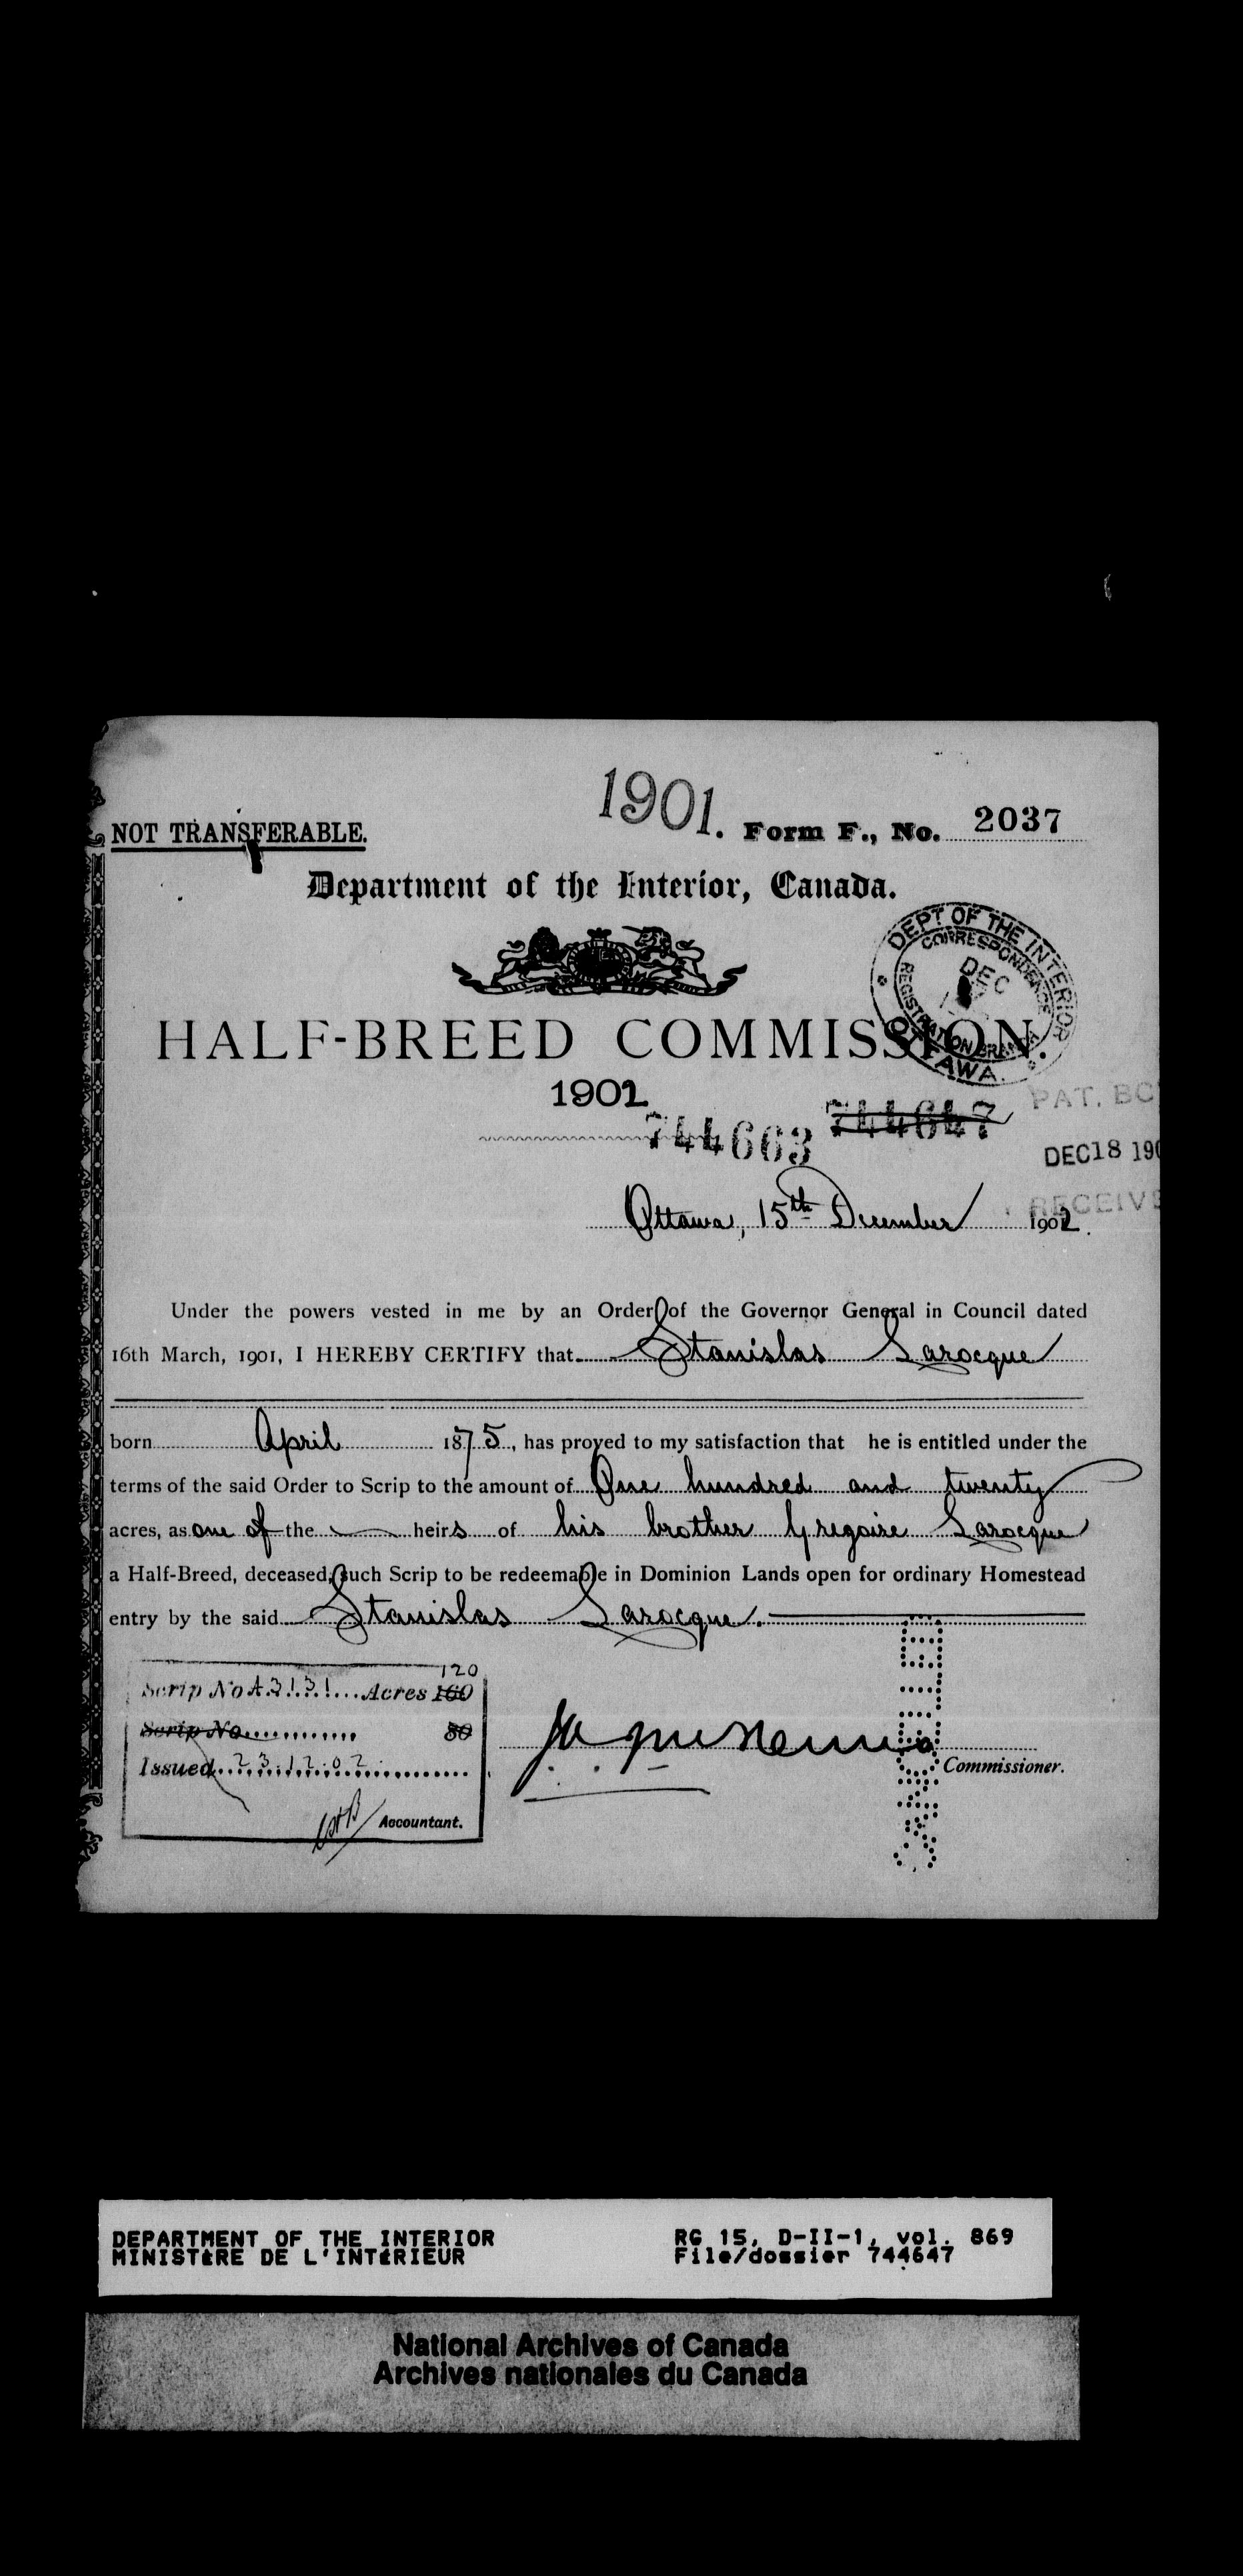 1901.
NOT TRANSFERABLE.
Form F., No. 2037
Department of the Interior, Canada.
DEPT OF THE INTERIOR
CORRESPONDENCE
REGISTRATION BRANCH
DEC
OTTAWA.
HALF-BREED COMMISSION.
1902
744663 744647
PAT. BC
DEC 18 190
RECEIVE
Ottawa, 15th December 1902.
Under the powers vested in me by an Order of the Governor General in Council dated
16th March, 1901, I HEREBY CERTIFY that Stanislas Larocque
born April 1875, has proved to my satisfaction that he is entitled under the
terms of the said Order to Scrip to the amount of One hundred and twenty
acres, as one of the heirs of his brother Gregoire Larocque
a Half-Breed, deceased, such Scrip to be redeemable in Dominion Lands open for ordinary Homestead
entry by the said Stanislas Larocque.
120
Scrip No A3131 Acres 160
Scrip No 80
Issued 23.12.02
Accountant.
Commissioner.
DEPARTMENT OF THE INTERIOR
MINISTÈRE DE L'INTÉRIEUR
RG 15, D-II-1, vol. 869
File/dossier 744647
National Archives of Canada
Archives nationales du Canada